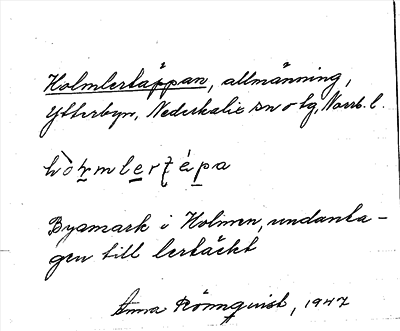 Holmlertäppan, allmänning,
Ytterbyn, Nederkalix sn o tg, Norrb. l.
hòꞎmlerʈépa
Byamark i Holmen, undanta-
gen till lertäckt
Anna Rönnqvist, 1947